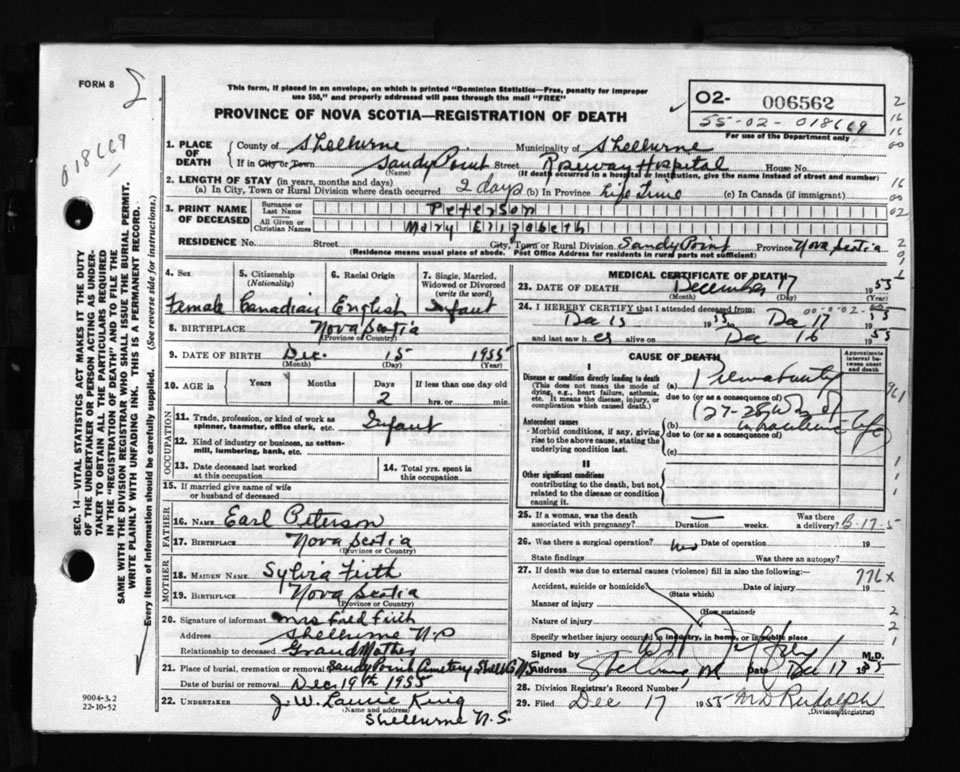 FORM 8
018669
This form, if placed in an envelope, on which is printed "Dominion Statistics—Free, penalty for improper
use $50," and properly addressed will pass through the mail "FREE"
PROVINCE OF NOVA SCOTIA—REGISTRATION OF DEATH
02- 006562
55-02-018669
For use of the Department only
1. PLACE OF DEATH
County of Shelburne Municipality of Shelburne
If in City or Town Sandy Point Street Roseway Hospital House No.
(Name) (If death occurred in a hospital or institution, give the name instead of street and number)
2. LENGTH OF STAY (in years, months and days)
(a) In City, Town or Rural Division where death occurred 2 days (b) In Province Life Time (c) In Canada (if immigrant)
3. PRINT NAME OF DECEASED
Surname or Last Name Peterson
All Given or Christian Names Mary Elizabeth
RESIDENCE No. Street City, Town or Rural Division Sandy Point Province Nova Scotia
(Residence means usual place of abode. Post Office Address for residents in rural parts not sufficient)
4. Sex
Female
5. Citizenship
(Nationality)
Canadian
6. Racial Origin
English
7. Single, Married,
Widowed or Divorced
(write the word)
Infant
8. BIRTHPLACE Nova Scotia
(Province or Country)
9. DATE OF BIRTH Dec. 15 1955
(Month) (Day) (Year)
10. AGE in
Years Months Days If less than one day old
2 hrs. or min.
OCCUPATION
11. Trade, profession, or kind of work as
spinner, teamster, office clerk, etc. Infant
12. Kind of industry or business, as cotton-
mill, lumbering, bank, etc.
13. Date deceased last worked
at this occupation
14. Total yrs. spent in
this occupation
15. If married give name of wife
or husband of deceased
FATHER
16. NAME Earl Peterson
17. BIRTHPLACE Nova Scotia
(Province or Country)
MOTHER
18. MAIDEN NAME Sylvia Firth
19. BIRTHPLACE Nova Scotia
(Province or Country)
20. Signature of informant Mrs Firth
Address Shelburne N.S
Relationship to deceased Grand Mother
21. Place of burial, cremation or removal Sandy Point Cemetery Shelb N.S
Date of burial or removal Dec 19th 1955
22. UNDERTAKER J.W. Laurie King
(Name and address)
Shelburne N.S.
MEDICAL CERTIFICATE OF DEATH
23. DATE OF DEATH December 17 1955
(Month) (Day) (Year)
24. I HEREBY CERTIFY that I attended deceased from:
Dec 15 1955 to Dec 17 1955
and last saw her alive on Dec 16 1955
CAUSE OF DEATH
Approximate
interval be-
tween onset
and death
I
Disease or condition directly leading to death
(This does not mean the mode of
dying, e.g., heart failure, asthenia,
etc. It means the disease, injury, or
complication which caused death.)
(a) Prematurity
due to (or as a consequence of)
Antecedent causes
- Morbid conditions, if any, giving
rise to the above cause, stating the
underlying condition last.
(b) intrauterine life)
due to (or as a consequence of)
(c)
II
Other significant conditions
contributing to the death, but not
related to the disease or condition
causing it.
25. If a woman, was the death
associated with pregnancy? Duration weeks.
Was there
a delivery? B-17-5
26. Was there a surgical operation? no Date of operation 19
State findings Was there an autopsy?
27. If death was due to external causes (violence) fill in also the following:— 776x
Accident, suicide or homicide? Date of injury 19
(State which)
Manner of injury
(How sustained)
Nature of injury
Specify whether injury occurred in industry, in home, or in public place
Signed by M.D.
Address Date Dec 17 1955
28. Division Registrar's Record Number
29. Filed Dec 17 1955 M D Rudolph
(Division Registrar)
SEC. 14—VITAL STATISTICS ACT MAKES IT THE DUTY
OF THE UNDERTAKER OR PERSON ACTING AS UNDER-
TAKER TO OBTAIN ALL THE PARTICULARS REQUIRED
IN THE "REGISTRATION OF DEATH" AND TO FILE THE
SAME WITH THE DIVISION REGISTRAR WHO SHALL ISSUE THE BURIAL PERMIT.
WRITE PLAINLY WITH UNFADING INK. THIS IS A PERMANENT RECORD.
Every item of information should be carefully supplied. (See reverse side for instructions.)
9004-3.2
22-10-52